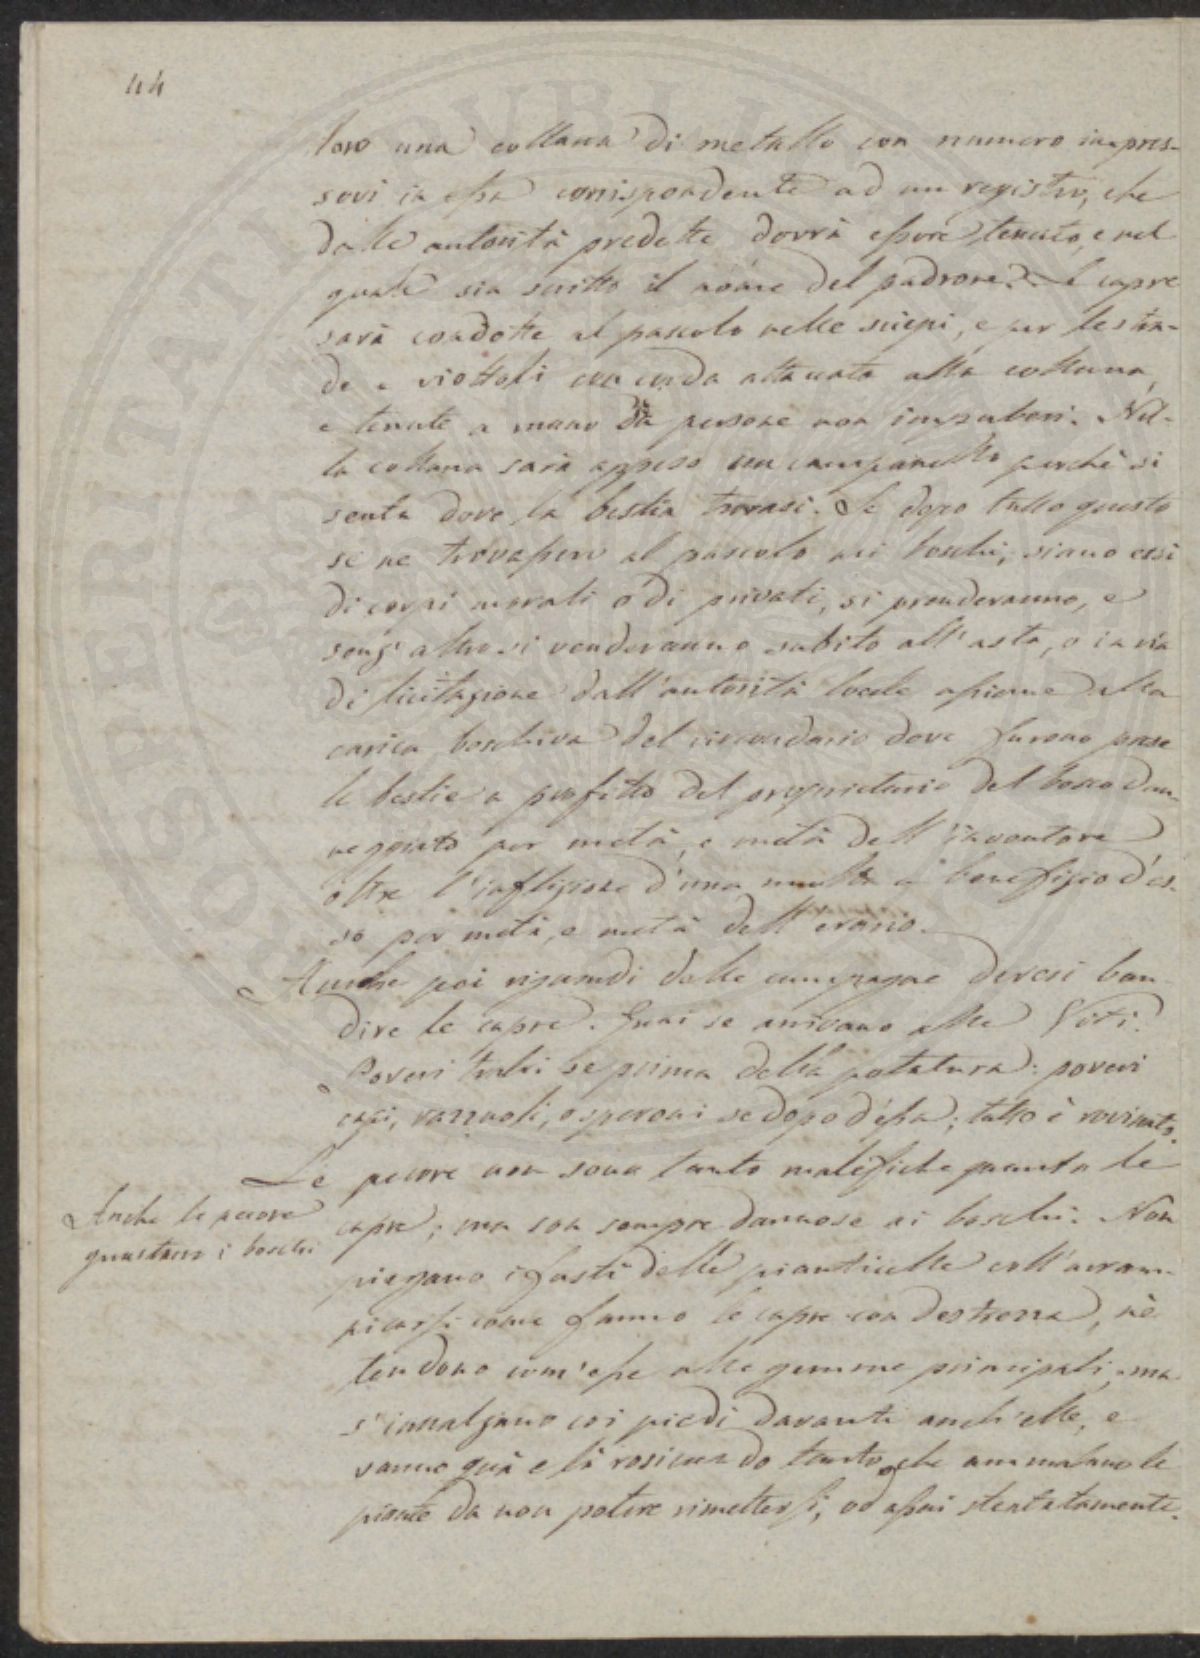 44
loro una collana di metallo con numero impres-
sovi in essa corrispondente ad un registro, che
dalle autorità predette dovrà essere tenuto, e nel
quale sia scritto il nome del padrone. Le capre
sarà condotte al pascolo nelle siepi, e per le stra-
de e viottoli con corda attaccata alla collana,
e tenute a mano da persone non impuberi. Nel-
la collana sarà appeso un campanello perchè si
senta dove la bestia trovasi. Se dopo tutto questo
se ne trovassero al pascolo nei boschi, siano essi
di corpi morali o di privati, si prenderanno, e
senz'altro si venderanno subito all'asta, o in via
di licitazione dall'autorità locale assieme alla
carica boschiva del circondario dove furono prese
le bestie a profitto del proprietario del bosco dan-
neggiato per metà, e metà dell'inventore
oltre l'inflizione d'una multa a benefizio d'es-
so per metà, e metà dell'erario.
Anche poi riguardi delle campagne devesi ban-
dire le capre. Guai se arrivano alle Viti.
Poveri tralci se prima della potatura: poveri
capi, razzuoli, o speroni se dopo d'essa; tutto è rovinato.
Le pecore non sono tanto malefiche quanto le
Anche le pecore
guastano i boschi
capre; ma son sempre dannose ai boschi. Non
piegano i fusti delle pianticelle coll'arram-
picarsi come fanno le capre con destrezza, nè
tendono com'esse alle gemme principali, ma
s'innalzano coi piedi davanti anch'elle, e
vanno quà e là rosicando tanto, che ammalano le
piante da non potere rimettersi, od assai stentatamente.